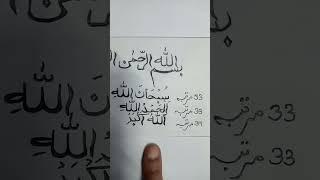 بِسْمِ اللهِ الرَّحْمٰنِ
33 مرتبہ سُبْحَانَ اللهِ
33 مرتبہ اَلْحَمْدُ لِلّٰهِ
34 مرتبہ اَللهُ اَكْبَرُ